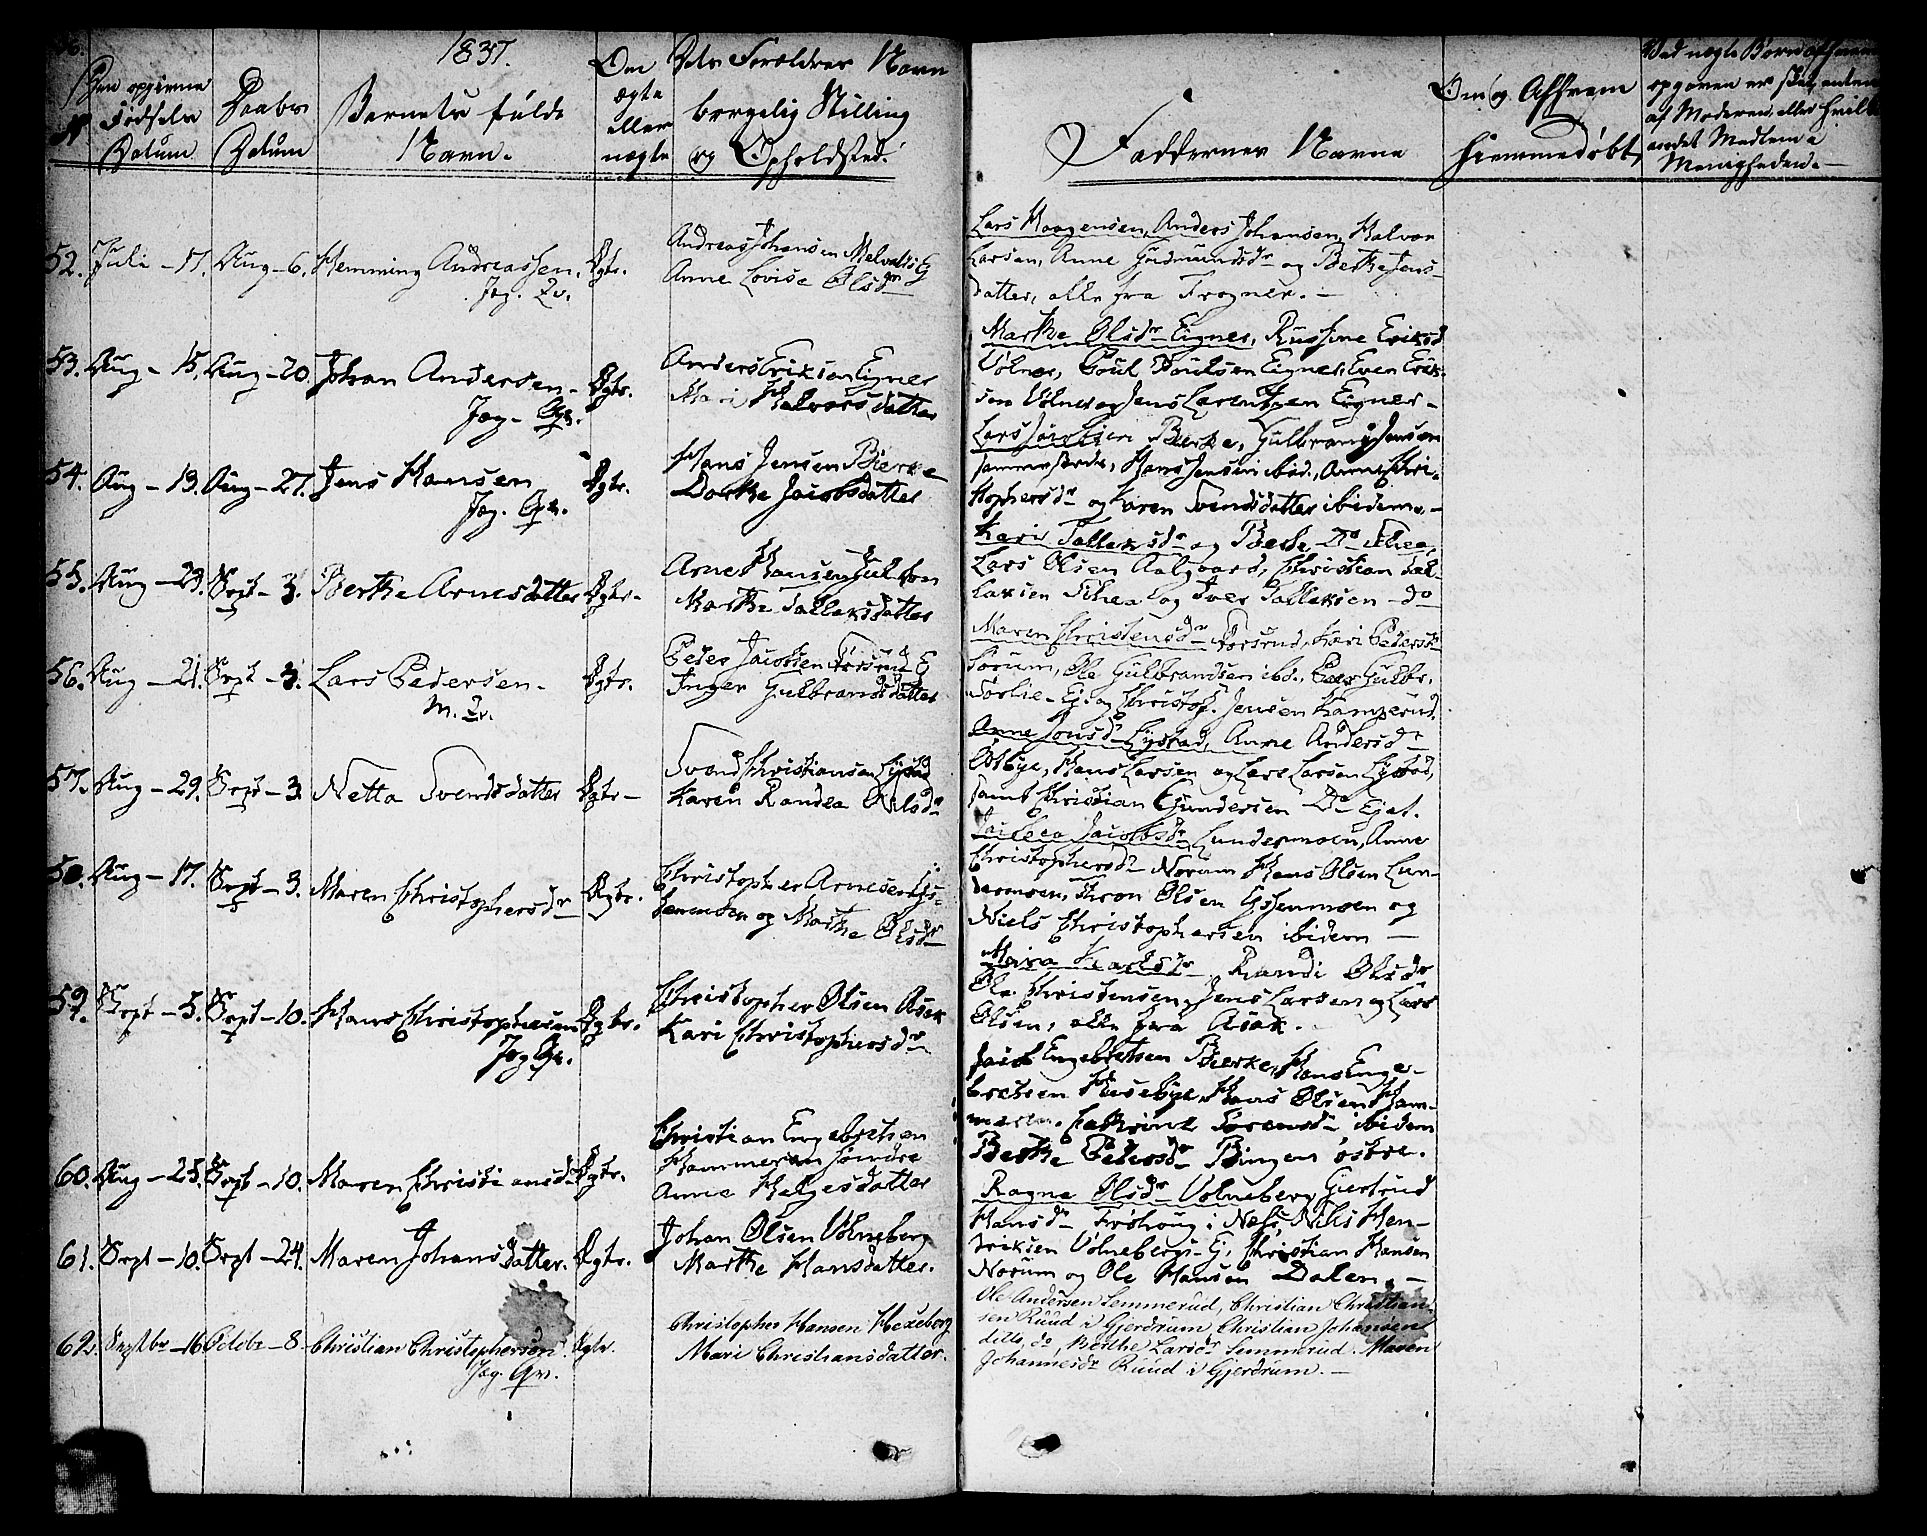 1837.
N
Den opgivne
Fødsels
Datum
Daabs
Datum
Barnets fulde
Navn.
Om
ægte
eller
uægte
Forældres Navn
borgelig Stilling
og Opholdsted.
Faddernes Navne
Om og Af
hiemmedøbt
Ved uægte Børn
opgaven er skeet, enten
af Moderen, eller hvilke
andet Medlem i
Menigheden.
52. Juli - 17. Aug - 6. Hemming Andreassen. Ægte.
Jag. Qv.
Andreas Johansen
Anne Lovise Olsdr
Lars Haagensen, Anders Johansen, Halvor
Larsen, Anne Gudmundsdr og Berthe Jens-
datter, alle fra Frogner. -
53. Aug - 15. Aug - 20. Johan Andersen - Ægte.
Jag - Qv.
Anders Eriksen Eigner
Mari Halvorsdatter
Marthe Olsdr Eigner, Eriksd
Volner, Poul Poulsen Eigner, Even Erik-
sen Volner og Jens Larentsen Eigner -
54. Aug - 13. Aug - 27. Jens Hansen Ægte.
Jag. Qv.
Hans Jensen Bierke
Dorthe Jacobsdatter
Lars Bierke, Gulbrand Jensen
sammesteds, Hans Jensen ibid., Anne Chri-
stophersdr og Karen Svendsdatter ibidem. -
55. Aug - 23. Sept - 3. Berthe Arnesdatter Ægte -
Arne Hansen
Marthe Tollefsdatter
Kari Tollefsdr og Berthe Do
Lars Olsen Aalgaard, Christian Tol-
lefsen og Iver Tollefsen - do
56. Aug - 21. Sept - 3. Lars Pedersen - Ægte.
M. Qv.
Peder Jacobsen
Inger Gulbrandsdatter
Maren Christensdr Kari Pedersd
Sørum, Ole Gulbrandsen ibd., Gulbr.
Sørlie - Ej. og Christoph. Jensen
57. Aug - 29. Sept - 3. Netta Svendsdatter Ægte -
Svend Christiansen Lystad
Karen Randea Nilsdr
Anne Jonsdr Lystad, Anne Andersdr
Østbye, Hans Larsen og Lars Larsen Lystad,
samt Christian Gundersen Do Ejet.
58. Aug - 17. Sept - 3. Maren Christophersdr Ægte.
Christopher Arnesen
og Marthe Olsdr
Jacobsdr Lundermoen, Anne
Christophersdr Norum Hans Olsen Lun-
dermoen, Thron Olsen og
Niels Christophersen ibidem -
59. Sept - 5. Sept - 10. Hans Christophersen Ægte.
Jag Qv.
Christopher Olsen Asak
Kari Christophersdr
Maria Karlsdr Randi Olsdr
Ole Christensen, Jens Larsen og Lars
Olsen, alle fra Asak. -
60. Aug - 25. Sept - 10. Maren Christiansdr Ægte.
Christian Engebretsen
Hammeren søndre
Anne Helgesdatter
Jacob Engebretsen Bierke, Hans Enge-
bretsen Husebye, Hans Olsen Ham-
meren, Cathrine Sørensdr ibidem
Berthe Pedersdr Bingen østre.
61. Sept - 10. Sept - 24. Maren Johansdatter. Ægte.
Johan Olsen Volneberg
Marthe Hansdatter.
Ragne Olsdr Volneberg, Giertrud
Hansdr Frøhoug i Næs, Nils Hen-
driksen Volnebergs - Ej, Christian Hansen
Norum og Ole Hansen Dalen. -
62. Septbr - 16 Octobr - 8 - Christian Christophersen. Ægte.
Jag. Qv.
Christopher Hansen Hexeberg
Mari Christiansdatter.
Ole Andersen Lemmerud, Christian Christian-
sen Ruud i Gjerdrum Christian Johansen
ditto do, Berthe Larsdr Lemmerud. Maren
Johannesdr Ruud i Gjerdrum. -